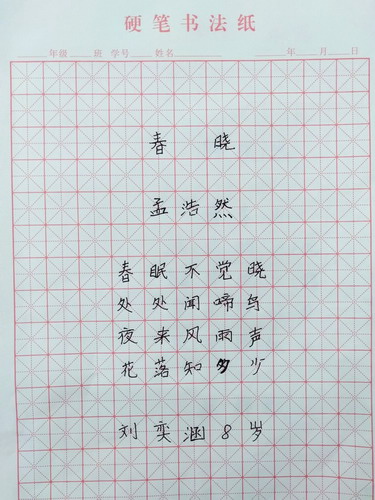 硬笔书法纸
年级 班 学号 姓名 年 月 日
春晓
孟浩然
春眠不觉晓
处处闻啼鸟
夜来风雨声
花落知多少
刘奕涵8岁